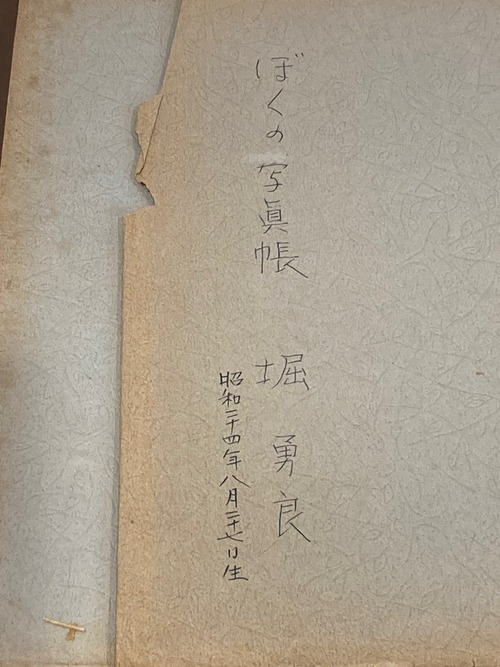 ぼくの写眞帳 堀 勇良
昭和二十四年八月二十七日生